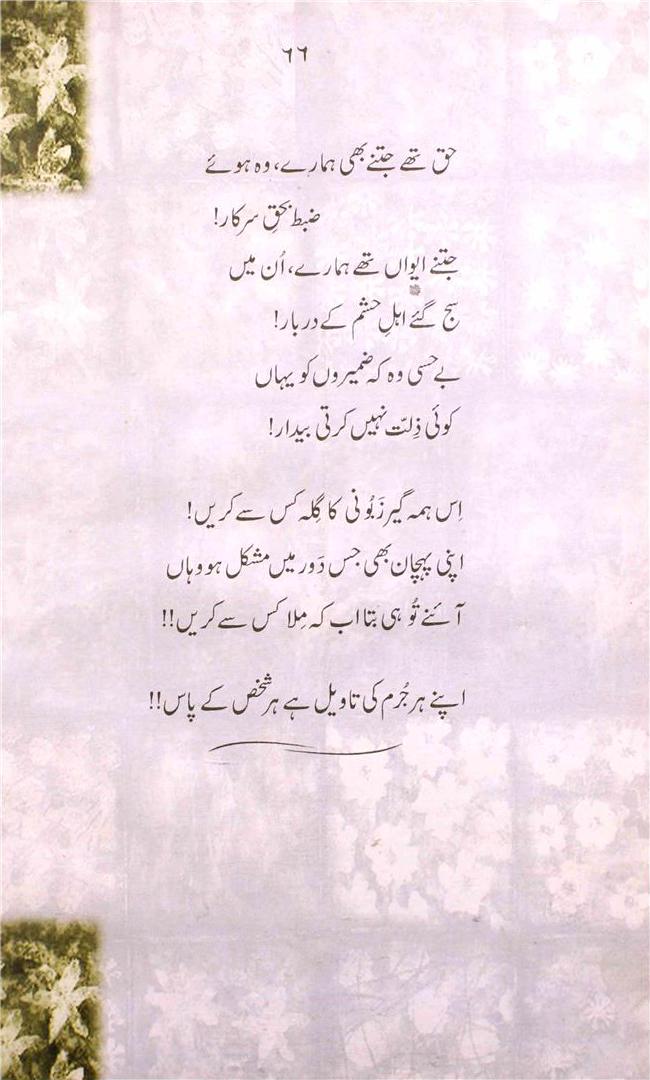 ۶۶
حق تھے جتنے بھی ہمارے، وہ ہوئے
ضبط بحقِ سرکار!
جتنے ایواں تھے ہمارے، اُن میں
سج گئے اہلِ حشم کے دربار!
بے حسی وہ کہ ضمیروں کو یہاں
کوئی ذِلّت نہیں کرتی بیدار!
اِس ہمہ گیر زَبُونی کا گِلہ کس سے کریں!
اپنی پہچان بھی جس دَور میں مشکل ہو وہاں
آئنے تُو ہی بتا اب کہ مِلا کس سے کریں!!
اپنے ہر جُرم کی تاویل ہے ہر شخص کے پاس!!